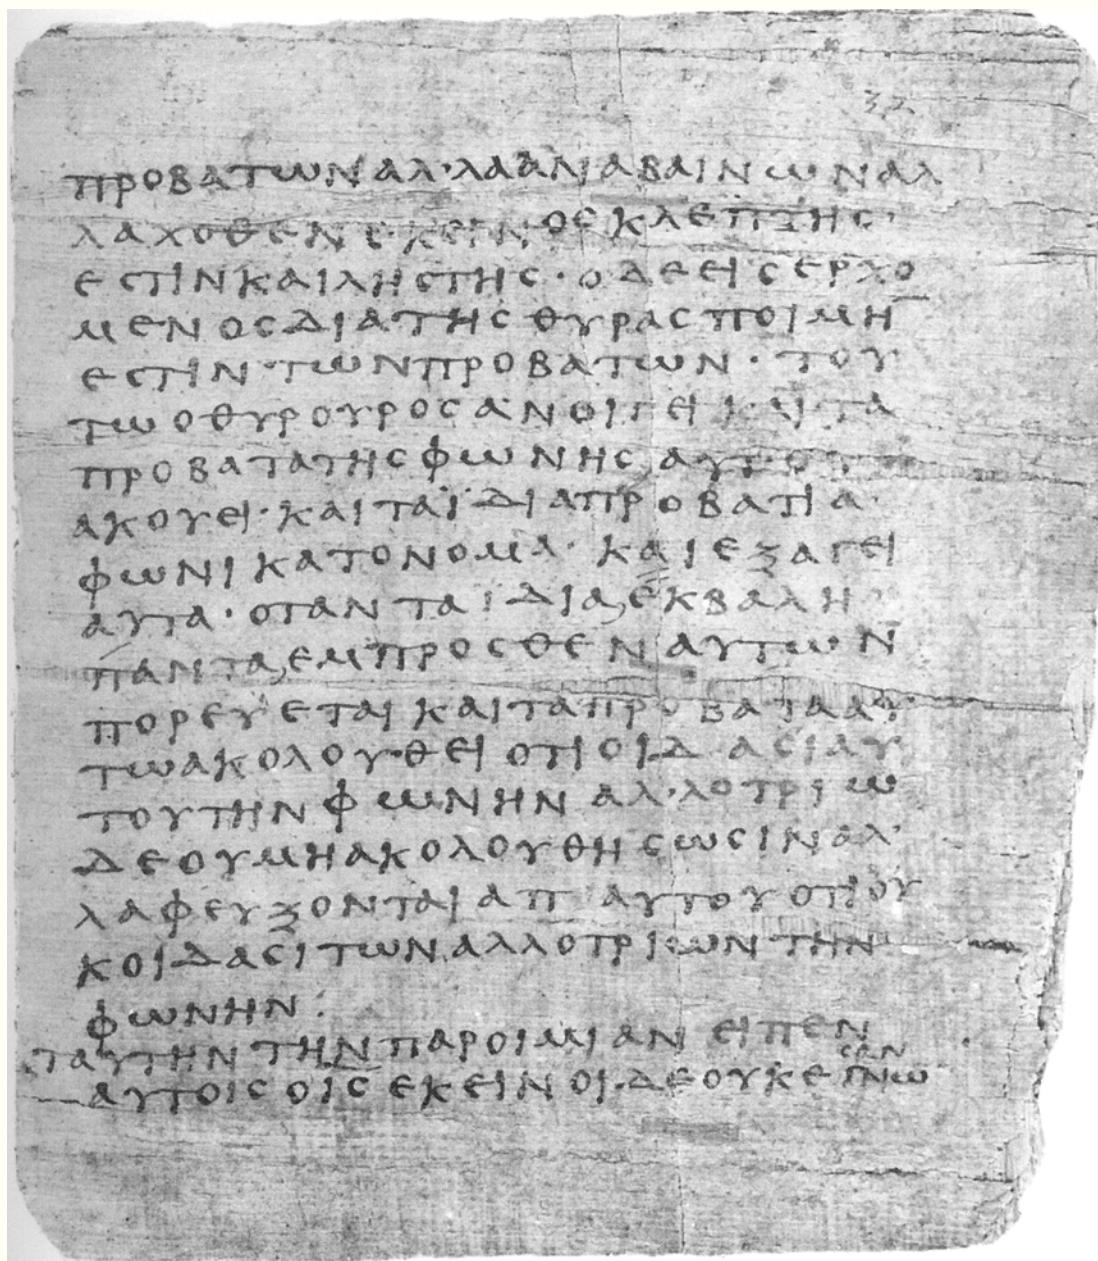 ξζ
ΠΡΟΒΑΤΩΝ ΑΛ·ΛΑ ΑΝΑΒΑΙΝΩΝ ΑΛ
ΛΑΧΟΘΕΝ ΕΚΕΙΝΟϹ ΚΛΕΠΤΗϹ·
ΕϹΤΙΝ ΚΑΙ ΛΗϹΤΗϹ· Ο ΔΕ ΕΙϹΕΡΧΟ
ΜΕΝΟϹ ΔΙΑ ΤΗϹ ΘΥΡΑϹ ΠΟΙΜΗ̅
ΕϹΤΙΝ·ΤΩΝ ΠΡΟΒΑΤΩΝ· ΤΟΥ
ΤΩ Ο ΘΥΡΟΥΡΟϹ ΑΝΟΙΓΕΙ ΚΑΙ ΤΑ
ΠΡΟΒΑΤΑ ΤΗϹ ΦΩΝΗϹ ΑΥΤΟΥ
ΑΚΟΥΕΙ· ΚΑΙ ΤΑ ΪΔΙΑ ΠΡΟΒΑΤΙΑ·
ΦΩΝΙ ΚΑΤ ΟΝΟΜΑ· ΚΑΙ ΕΞΑΓΕΙ
ΑΥΤΑ· ΟΤΑΝ ΤΑ ΪΔΙΑ ΕΚΒΑΛΗ·
ΠΑΝΤΑ ΕΜΠΡΟϹΘΕΝ ΑΥΤΩΝ
ΠΟΡΕΥΕΤΑΙ ΚΑΙ ΤΑ ΠΡΟΒΑΤΑ ΑΥ
ΤΩ ΑΚΟΛΟΥ·ΘΕΙ ΟΤΙ ΟΙΔΑϹΙ ΑΥ
ΤΟΥ ΤΗΝ ΦΩΝΗΝ ΑΛ·ΛΟΤΡΙΩ
ΔΕ ΟΥ ΜΗ ΑΚΟΛΟΥΘΗϹΩϹΙΝ ΑΛ·
ΛΑ ΦΕΥΞΟΝΤΑΙ ΑΠ ΑΥΤΟΥ ΟΤΙ ΟΥ
Κ ΟΙΔΑϹΙ ΤΩΝ ΑΛΛΟΤΡΙΩΝ ΤΗΝ
ΦΩΝΗΝ:
ΤΑΥΤΗΝ ΤΗΝ ΠΑΡΟΙΜΙΑΝ ΕΙΠΕΝ
ΑΥΤΟΙϹ ΟΙϹ ΕΚΕΙΝΟΙ·ΔΕ ΟΥΚ ΕΓΝΩϹΑΝ